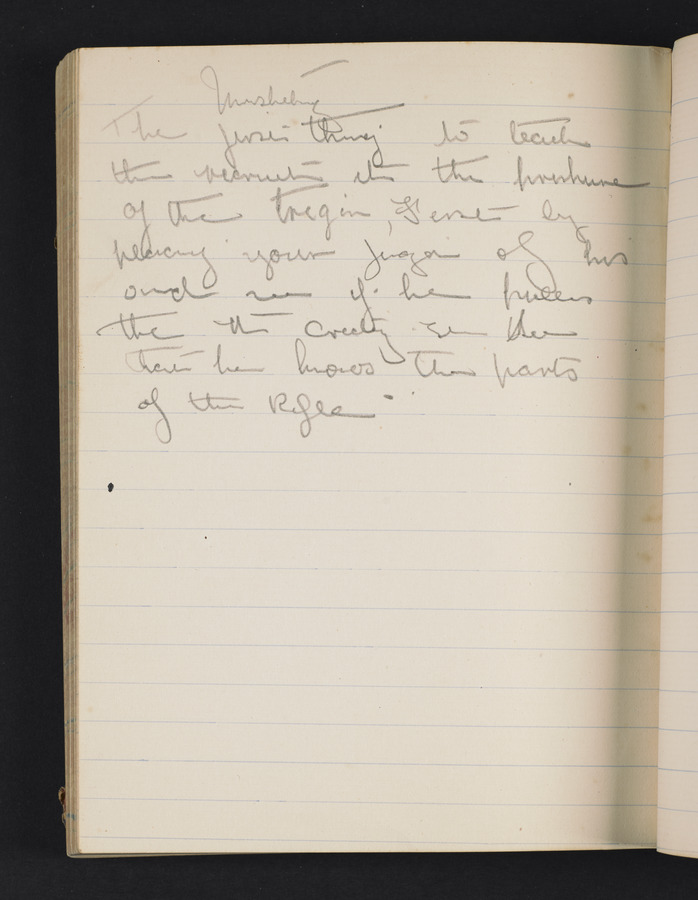 Musketry
The first thing to teach
the recruit is the pressure
of the trigger, Test by
placing your finger of his
and see if he pulls
the the correctly. See
that he knows the parts
of the Rifle